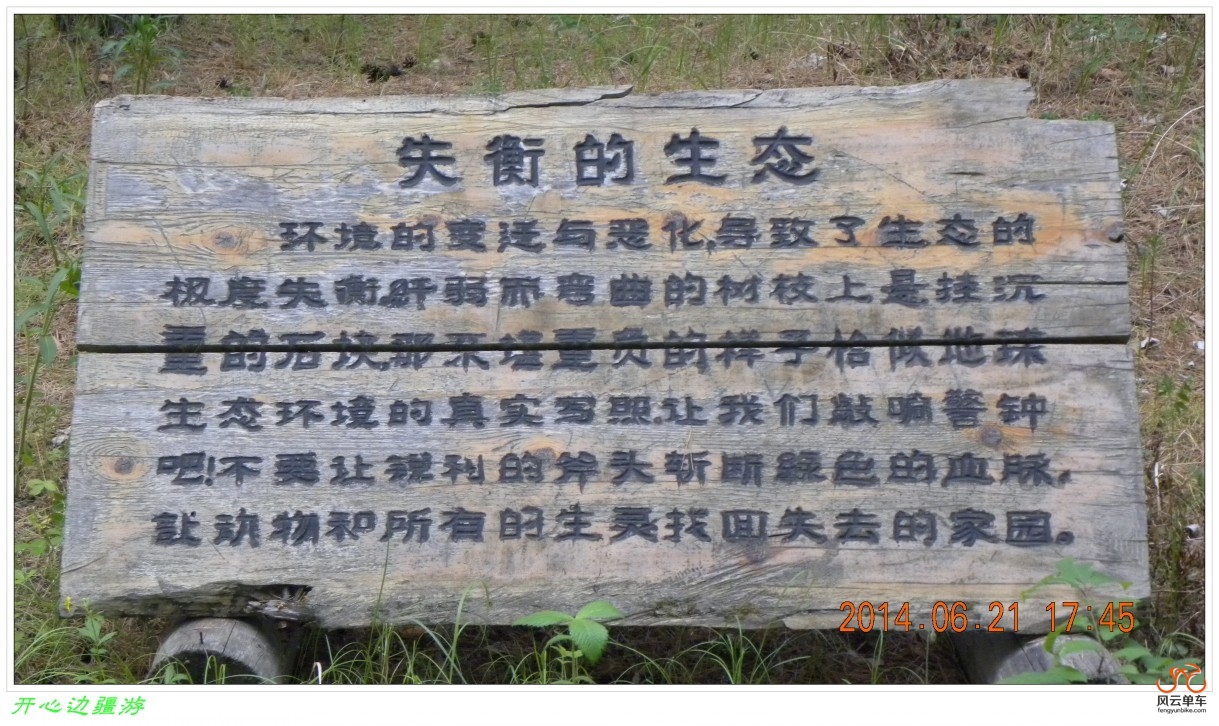 失衡的生态
环境的变迁与恶化,导致了生态的
极度失衡,纤弱而弯曲的树枝上悬挂沉
重的石块,那不堪重负的样子恰似地球
生态环境的真实写照.让我们敲响警钟
吧!不要让锐利的斧头斩断绿色的血脉,
让动物和所有的生灵找回失去的家园。
2014.06.21 17:45
开心边疆游
风云单车
fengyunbike.com